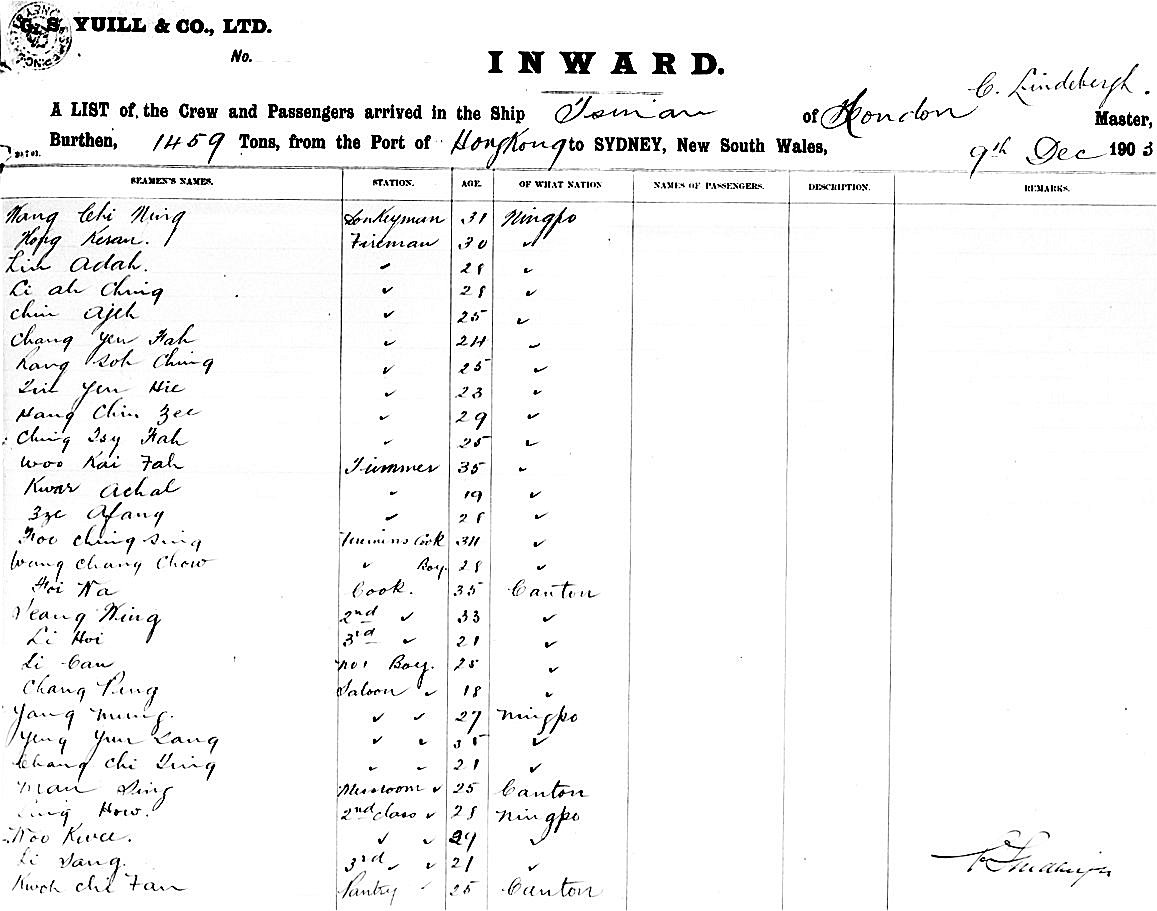 G. S. YUILL & CO., LTD.
No.
INWARD.
A LIST of the Crew and Passengers arrived in the Ship Tsinan of London C. Lindebergh. Master,
Burthen, 1459 Tons, from the Port of HongKong to SYDNEY, New South Wales, 9th Dec 1903
SEAMEN'S NAMES. STATION. AGE. OF WHAT NATION NAMES OF PASSENGERS. DESCRIPTION. REMARKS.
Wang Chi Ning Donkeyman 31 Ningpo
Hong Kesan. Fireman 30 ✓
Lin Adah. ✓ 28 ✓
Li ah Ching ✓ 28 ✓
Chin Ajeh ✓ 25 ✓
Chang Yen Fah ✓ 24 ✓
Kang Soh Ching ✓ 25 ✓
Yen Hie ✓ 23 ✓
Hang Chin Zee ✓ 29 ✓
Ching Tsy Fah ✓ 25 ✓
Woo Kai Fah Trimmer 35 ✓
Kwar Achal ✓ 19 ✓
Zze Afang ✓ 28 ✓
Foo Ching Sing Firemans Cook 34 ✓
Wang Chang Chow ✓ Boy. 28 ✓
Foi Na Cook. 35 Canton
Yeang Wing 2nd ✓ 33 ✓
Li Hoi 3rd ✓ 21 ✓
Li Can No 1 Boy. 25 ✓
Chang Ping Saloon ✓ 18 ✓
Yang Mung. ✓ ✓ 27 Ningpo
Ying Yun Lang ✓ ✓ 35 ✓
Chang Chi Ting ✓ ✓ 21 ✓
Man Sing Messroom ✓ 25 Canton
How. 2nd class ✓ 28 Ningpo
Woo Kwee. ✓ ✓ 29 ✓
Li Sang. 3rd ✓ ✓ 21 ✓
Kwok Chi Fan Pantry ✓ 25 Canton